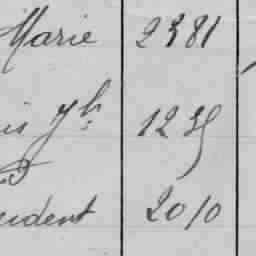 Marie 2381
is Jh 1235
ident 2010